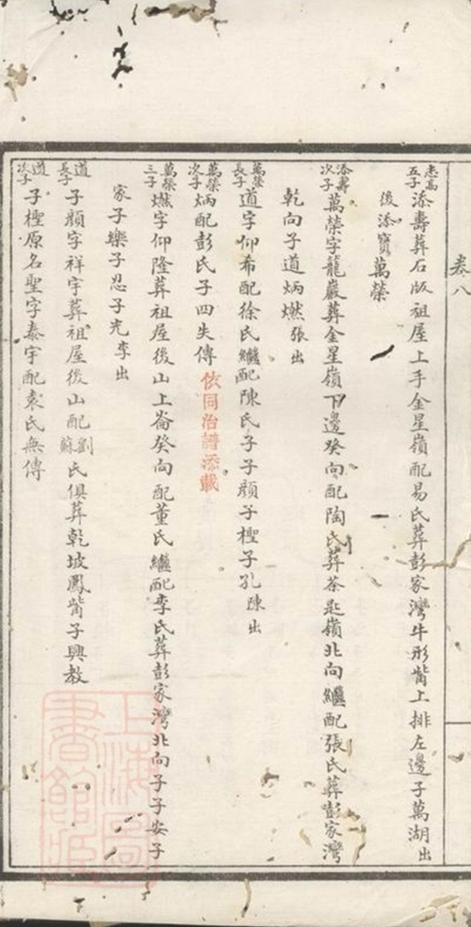 卷八
志高五子 添壽葬石版祖屋上手金星嶺配易氏葬彭家灣牛形觜上排左邊子萬湖出
後添寶萬榮
添壽次子 萬榮字龍巖葬金星嶺下邊癸向配陶氏葬茶匙嶺北向繼配張氏葬彭家灣
乾向子道炳燃張出
萬榮長子 道字仰希配徐氏繼配陳氏子子顔子檉子孔陳出
萬榮次子 炳配彭氏子四失傳依同治譜添載
萬榮三子 燃字仰隆葬祖屋後山上崙癸向配董氏繼配李氏葬彭家灣北向子子安子
家子樂子忍子光李出
道長子 子顔字祥宇葬祖屋後山配劉蘇氏俱葬乾坡鳳觜子興教
道次子 子檉原名聖字泰宇配袁氏無傳
上海圖書館藏